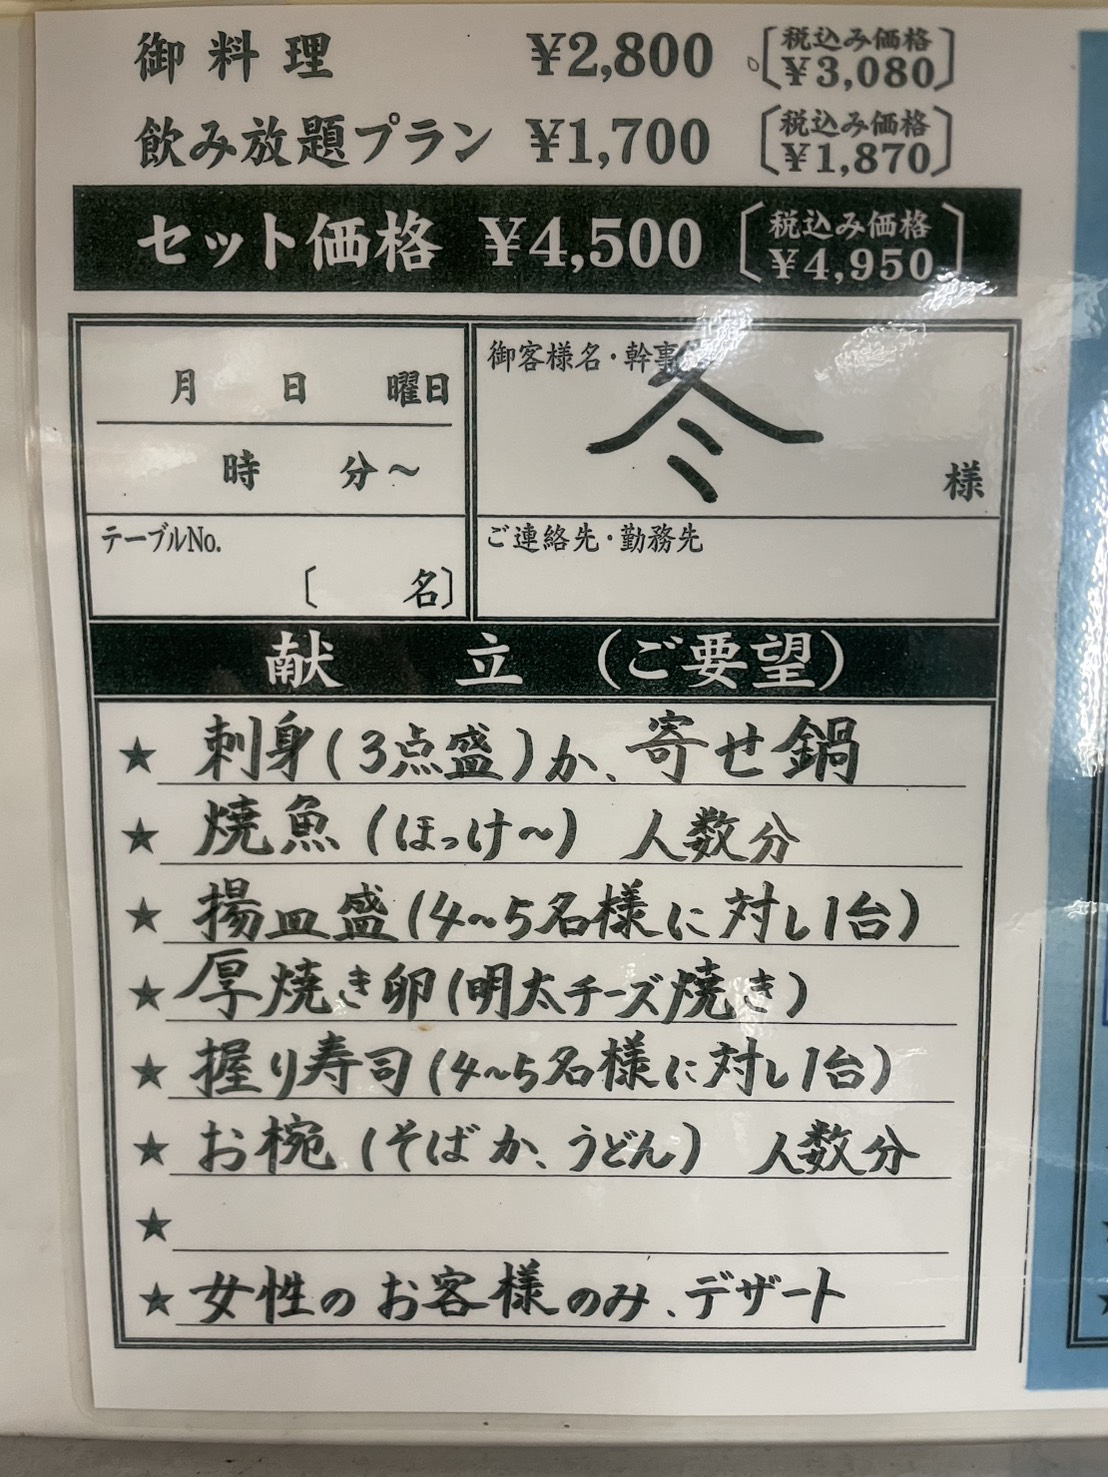 御料理 ¥2,800 〔税込み価格 ¥3,080〕
飲み放題プラン ¥1,700 〔税込み価格 ¥1,870〕
セット価格 ¥4,500 〔税込み価格 ¥4,950〕
月 日 曜日
時 分～
テーブルNo.
〔 名〕
御客様名・幹事
冬
様
ご連絡先・勤務先
献 立 (ご要望)
★ 刺身(3点盛)か、寄せ鍋
★ 焼魚(ほっけ～) 人数分
★ 揚皿盛(4～5名様に対し1台)
★ 厚焼き卵(明太チーズ焼き)
★ 握り寿司(4～5名様に対し1台)
★ お椀(そばか、うどん) 人数分
★
★ 女性のお客様のみ、デザート